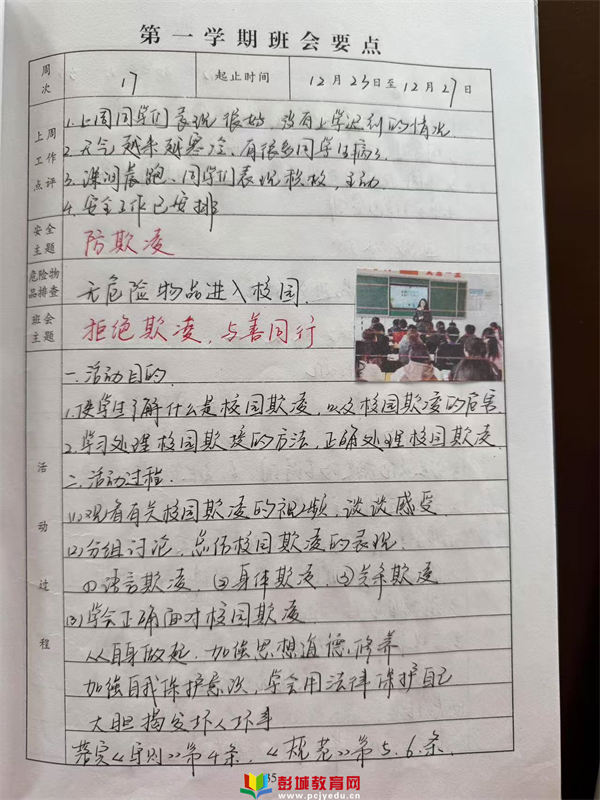 第一学期班会要点
周次 17 起止时间 12月23日至12月27日
上周工作点评
1.上周同学们表现很好,没有上学迟到的情况
2.天气越来越寒冷、有很多同学生病了
3.课间晨跑、同学们表现积极,主动
4.安全工作已安排
安全主题 防欺凌
危险物品排查 无危险物品进入校园.
班会主题 拒绝欺凌,与善同行
活动过程
一.活动目的.
1.使学生了解什么是校园欺凌,以及校园欺凌的危害.
2.学习处理校园欺凌的方法,正确处理校园欺凌
二.活动过程.
(1)观看有关校园欺凌的视频,谈谈感受
(2)分组讨论,总结校园欺凌的表现.
①语言欺凌,②身体欺凌,③关系欺凌
(3)学会正确面对校园欺凌
从自身做起.加强思想道德修养.
加强自我保护意识,学会用法律保护自己
大胆揭发坏人坏事
落实《守则》第4条,《规范》第5.6.条.
35
彭城教育网
www.pcjyedu.cn